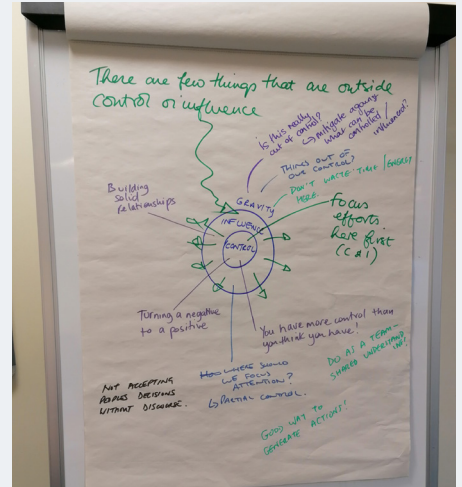 There are few things that are outside
control or influence
Is this really
out of control?
↳ mitigate against
what can be
controlled /
influenced?
THINGS OUT OF
OUR CONTROL?
DON'T WASTE TIME / ENERGY
HERE.
GRAVITY
INFLUENCE
CONTROL
Focus
efforts
here first
(C & I)
Building
solid
relationships
Turning a negative
to a positive
You have more control than
you think you have!
WHERE SHOULD
WE FOCUS
ATTENTION?
↳ PARTIAL CONTROL.
NOT ACCEPTING
PEOPLES DECISIONS
WITHOUT DISCOURSE.
DO AS A TEAM -
SHARED UNDERSTANDING!
GOOD WAY TO
GENERATE ACTIONS!